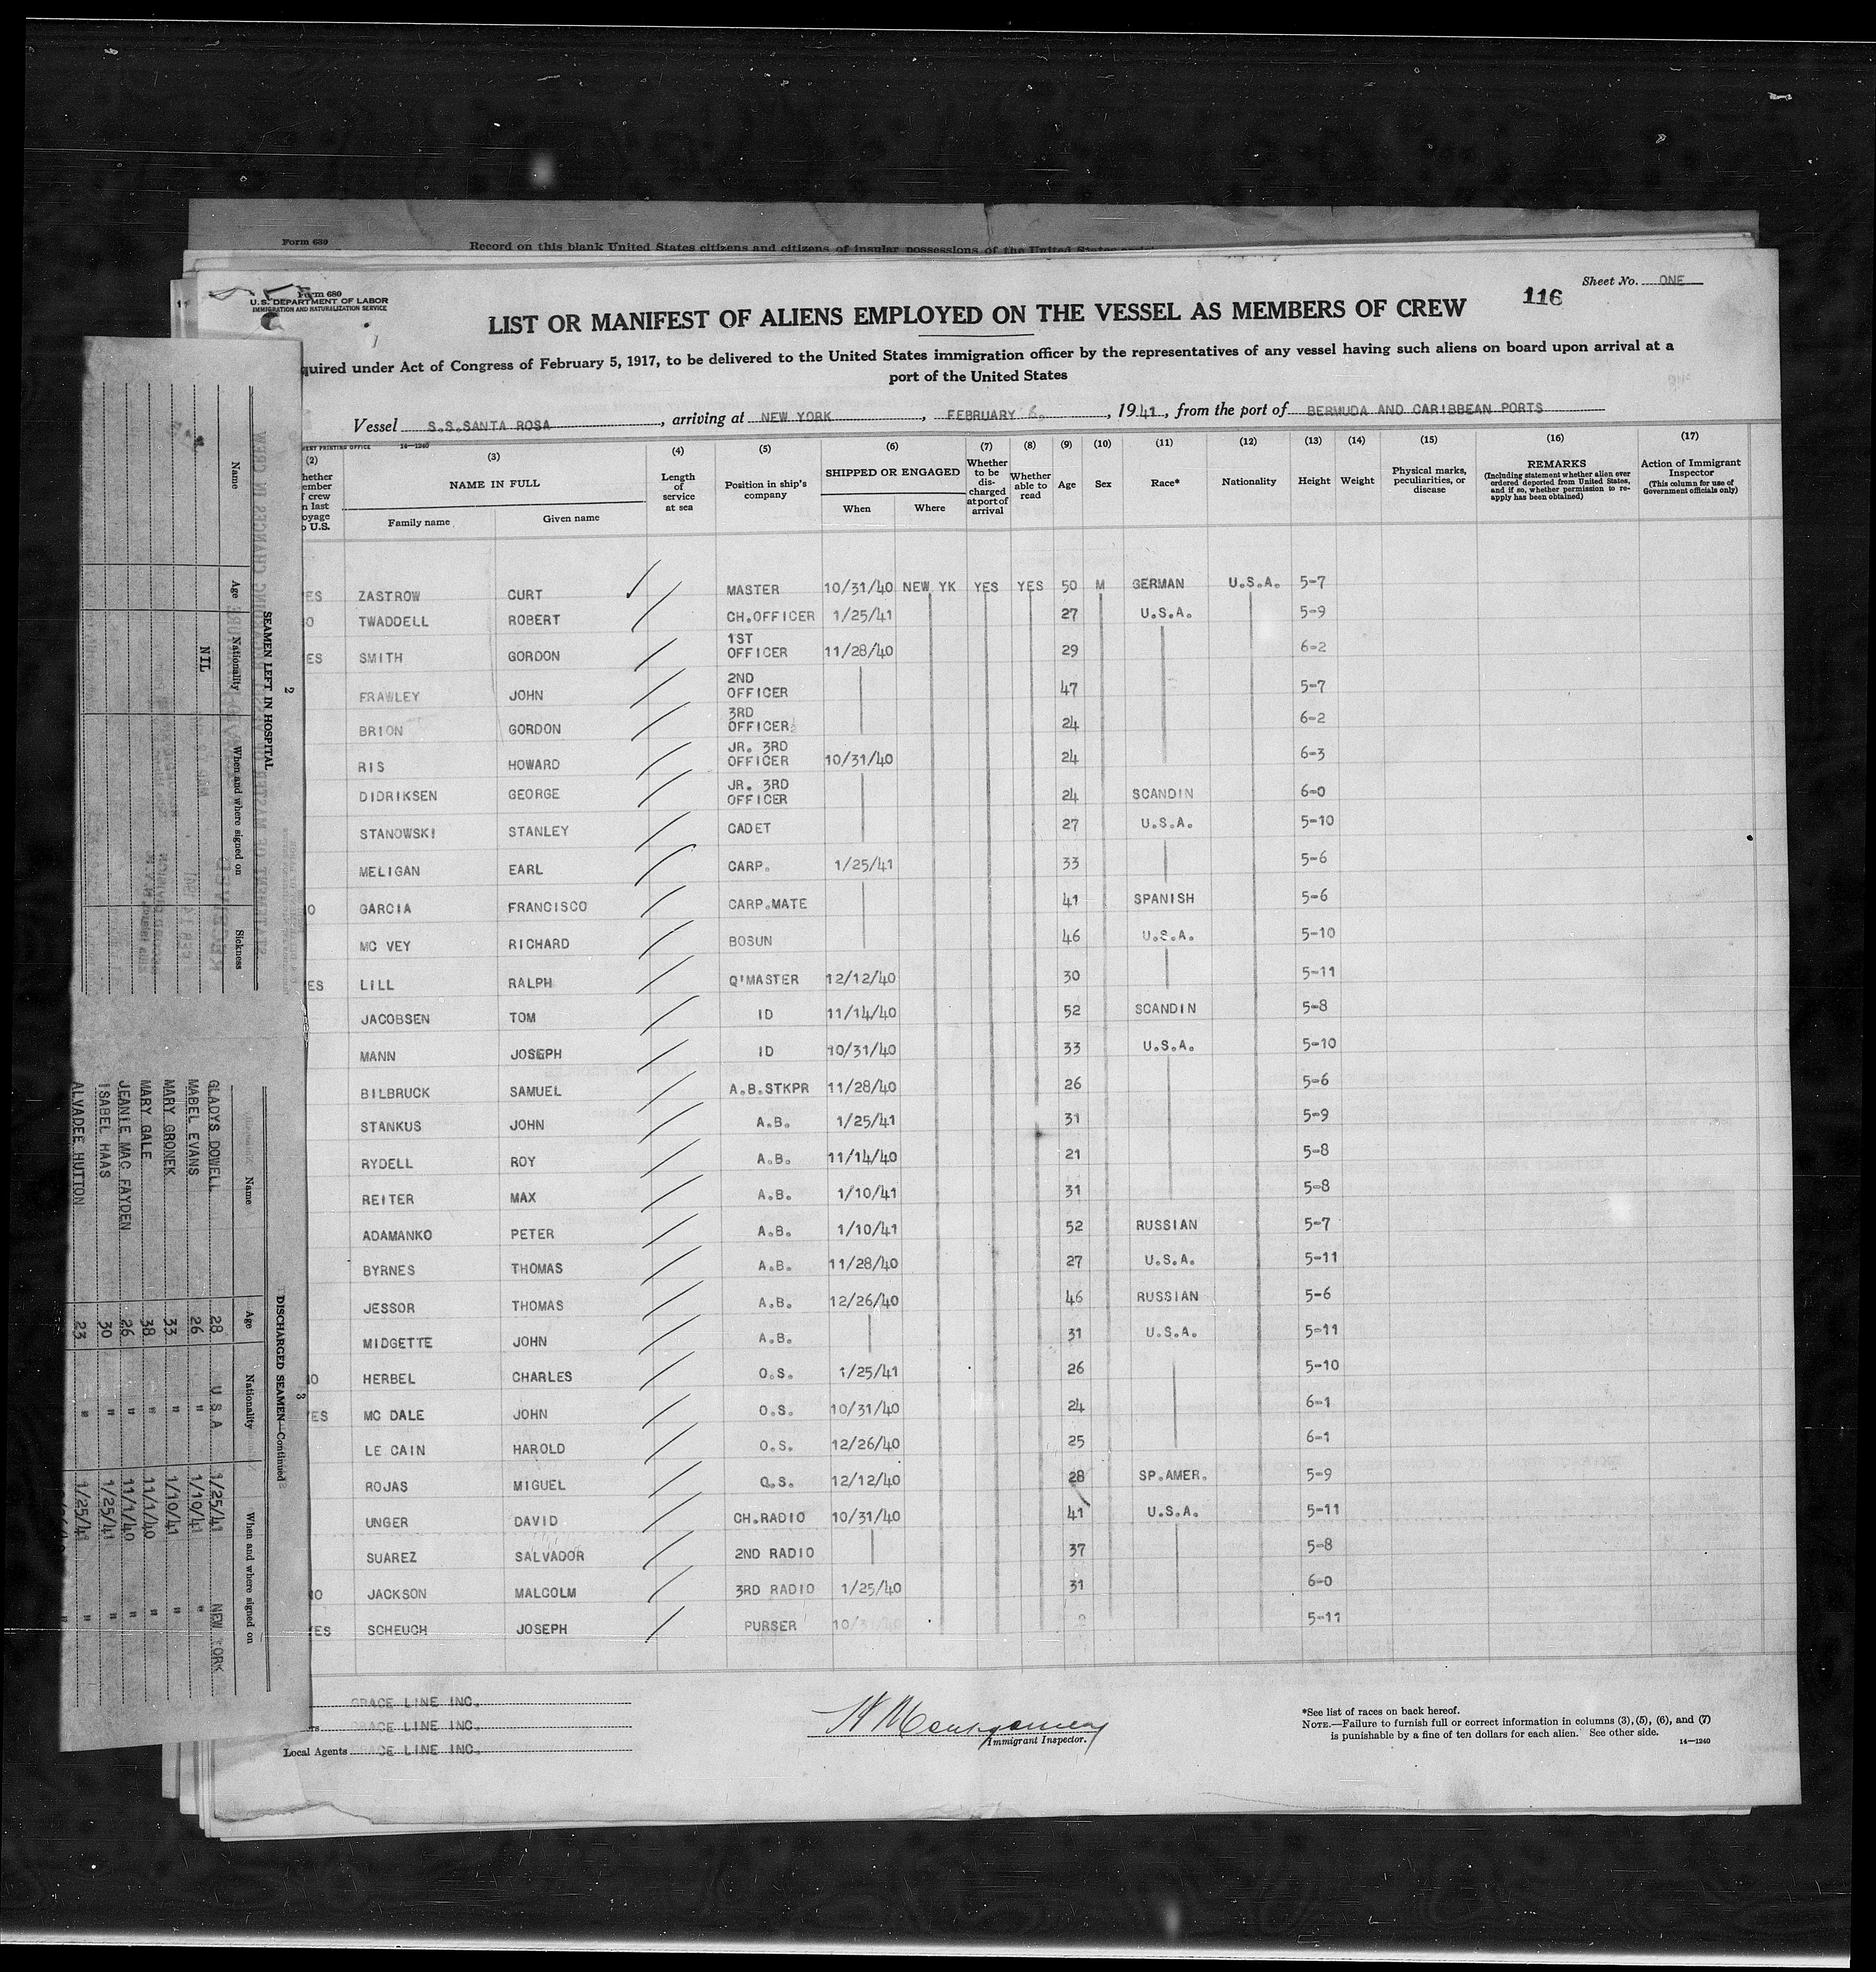 Form 630
Record on this blank United States citizens and citizens of insular possessions of the United States
Form 680
U.S. DEPARTMENT OF LABOR
IMMIGRATION AND NATURALIZATION SERVICE
Sheet No. ONE
116
LIST OR MANIFEST OF ALIENS EMPLOYED ON THE VESSEL AS MEMBERS OF CREW
quired under Act of Congress of February 5, 1917, to be delivered to the United States immigration officer by the representatives of any vessel having such aliens on board upon arrival at a
port of the United States
Vessel S.S.SANTA ROSA, arriving at NEW YORK, FEBRUARY 6, 1941, from the port of BERMUDA AND CARIBBEAN PORTS
MENT PRINTING OFFICE 14—1240
(2) (3) (4) (5) (6) (7) (8) (9) (10) (11) (12) (13) (14) (15) (16) (17)
hether ember f crew n last oyage o U.S.
NAME IN FULL
Family name Given name
Length of service at sea
Position in ship's company
SHIPPED OR ENGAGED
When Where
Whether to be discharged at port of arrival
Whether able to read
Age
Sex
Race*
Nationality
Height
Weight
Physical marks, peculiarities, or disease
REMARKS
(Including statement whether alien ever ordered deported from United States, and if so, whether permission to reapply has been obtained)
Action of Immigrant Inspector
(This column for use of Government officials only)
ES ZASTROW CURT MASTER 10/31/40 NEW YK YES YES 50 M GERMAN U.S.A. 5-7
O TWADDELL ROBERT CH.OFFICER 1/25/41 27 U.S.A. 5-9
ES SMITH GORDON 1ST OFFICER 11/28/40 29 6-2
FRAWLEY JOHN 2ND OFFICER 47 5-7
BRION GORDON 3RD OFFICER 24 6-2
RIS HOWARD JR. 3RD OFFICER 10/31/40 24 6-3
DIDRIKSEN GEORGE JR. 3RD OFFICER 24 SCANDIN 6-0
STANOWSKI STANLEY CADET 27 U.S.A. 5-10
MELIGAN EARL CARP. 1/25/41 33 5-6
O GARCIA FRANCISCO CARP.MATE 41 SPANISH 5-6
MC VEY RICHARD BOSUN 46 U.S.A. 5-10
ES LILL RALPH Q'MASTER 12/12/40 30 5-11
JACOBSEN TOM ID 11/14/40 52 SCANDIN 5-8
MANN JOSEPH ID 10/31/40 33 U.S.A. 5-10
BILBRUCK SAMUEL A.B.STKPR 11/28/40 26 5-6
STANKUS JOHN A.B. 1/25/41 31 5-9
RYDELL ROY A.B. 11/14/40 21 5-8
REITER MAX A.B. 1/10/41 31 5-8
ADAMANKO PETER A.B. 1/10/41 52 RUSSIAN 5-7
BYRNES THOMAS A.B. 11/28/40 27 U.S.A. 5-11
JESSOR THOMAS A.B. 12/26/40 46 RUSSIAN 5-6
MIDGETTE JOHN A.B. 31 U.S.A. 5-11
O HERBEL CHARLES O.S. 1/25/41 26 5-10
YES MC DALE JOHN O.S. 10/31/40 24 6-1
LE CAIN HAROLD O.S. 12/26/40 25 6-1
ROJAS MIGUEL O.S. 12/12/40 28 SP.AMER. 5-9
UNGER DAVID CH.RADIO 10/31/40 41 U.S.A. 5-11
SUAREZ SALVADOR 2ND RADIO 37 5-8
NO JACKSON MALCOLM 3RD RADIO 1/25/40 31 6-0
YES SCHEUCH JOSEPH PURSER 10/31/40 5-11
GRACE LINE INC.
GRACE LINE INC.
Local Agents GRACE LINE INC.
H Montgomery
Immigrant Inspector.
*See list of races on back hereof.
NOTE.—Failure to furnish full or correct information in columns (3), (5), (6), and (7)
is punishable by a fine of ten dollars for each alien. See other side.
14—1240
2
SEAMEN LEFT IN HOSPITAL
Name Age Nationality When and where signed on Sickness
NIL
3
DISCHARGED SEAMEN—Continued
Name Age Nationality When and where signed on
GLADYS DOWELL 28 U.S.A 1/25/41 NEW YORK
MABEL EVANS 26 " 1/10/41 "
MARY GRONEK 33 " 1/10/41 "
MARY GALE 38 " 11/1/40 "
JEANIE MAC FAYDEN 26 " 11/1/40 "
ISABEL HAAS 30 " 1/25/41 "
ALVADEE HUTTON 23 " 1/25/41 "